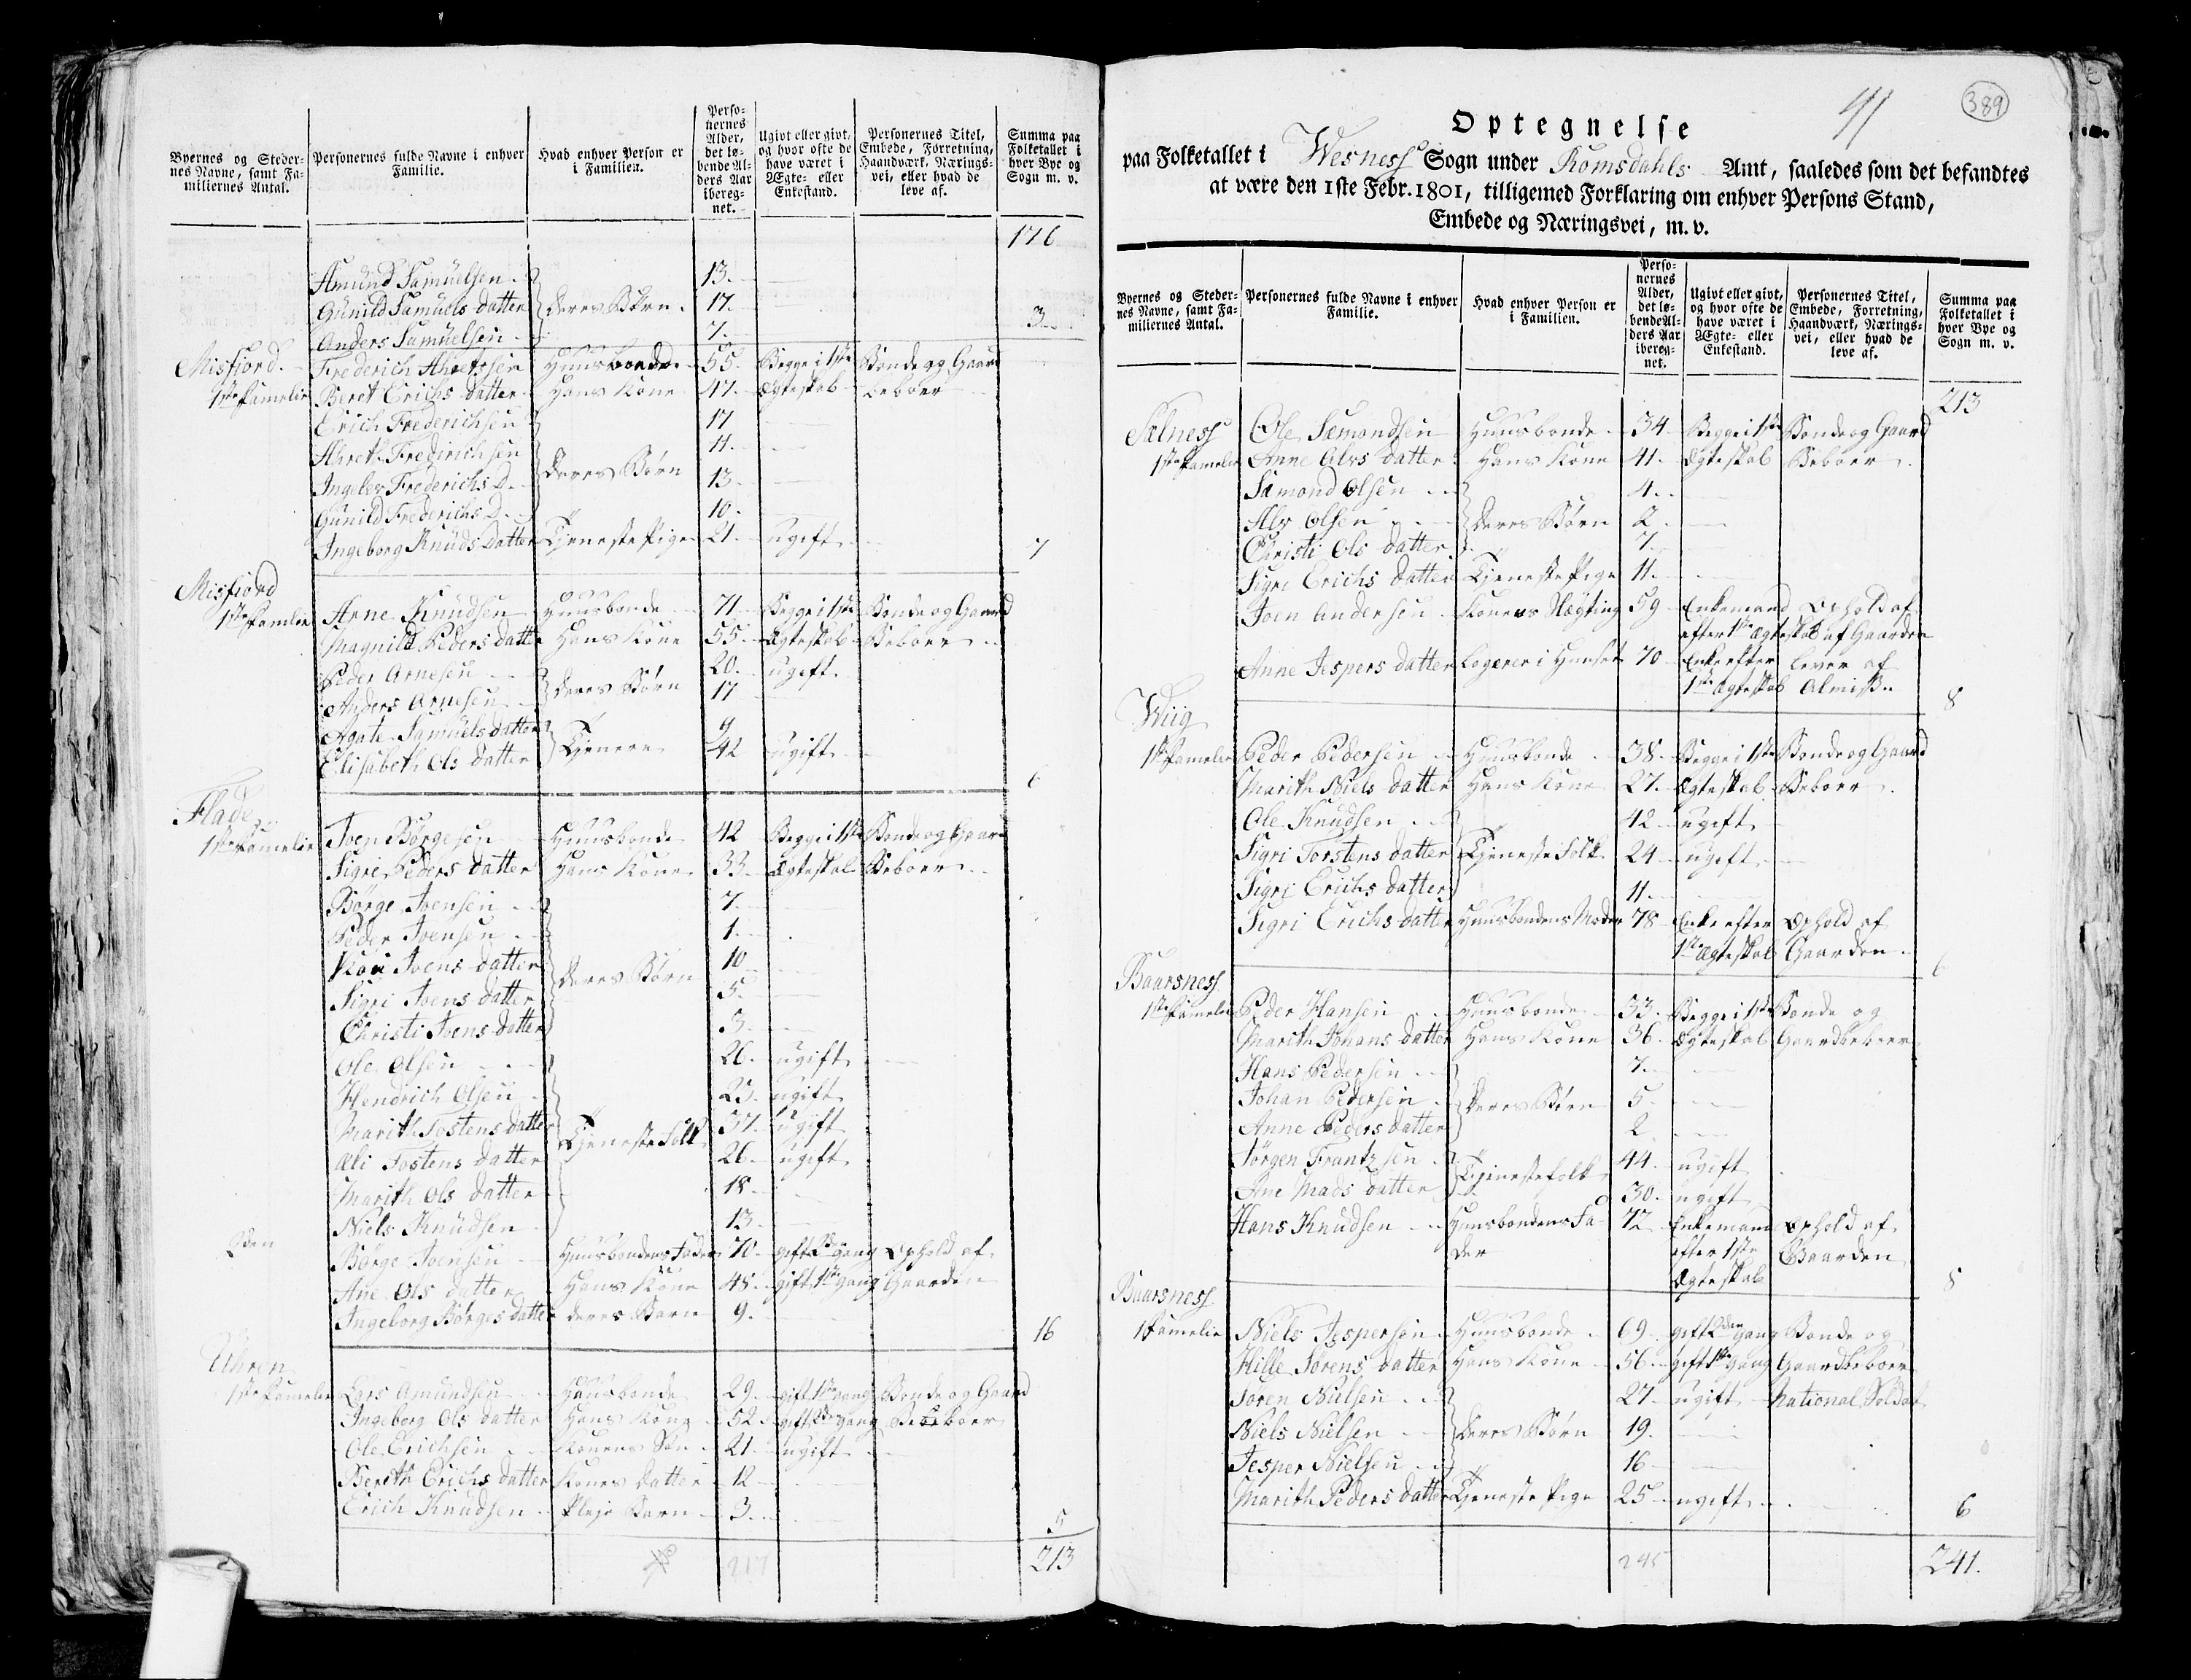 Byernes og Steder-nes Navne, samt Fa-miliernes Antal. Personernes fulde Navne i enhver Familie. Hvad enhver Person er i Familien. Perso-nernes Alder, det lø-bende Al-ders Aar ibereg-net. Ugivt eller givt, og hvor ofte de have været i Ægte- eller Enkestand. Personernes Titel, Embede, Forretning, Haandværk, Nærings-vei, eller hvad de leve af. Summa paa Folketallet i hver Bye og Sogn m. v.
176
Amund Samuelsen 13.
Gunild Samuels datter deres Børn 17.
Anders Samuelsen 7. 3
Misfjord. Frederich Ahretssen Huusbonde 55. Begge i 1ste Bonde og Gaard
1ste Famelie Beret Erichs datter Hans Kone 47. Ægteskab beboer
Erich Frederichsen 17
Ahreth Fredrichsen 11.
Ingeler Frederichs D. deres Børn 13
Gunild Frederichs D. 10.
Ingeborg Knuds datter Tjeneste Pige 21. ugift 7
Misfiord
1ste Famlie Arne Knudsen Huusbonde 71 Begge i 1ste Bonde og Gaard
Magnild Peders datter Hans Kone 55. Ægteskab Beboer
Peder Arnesen 20. ugift.
Anders Arnesen deres Børn 17
Agate Samuelsdatter 9
Elisabeth Ols datter Tjenere 42 ugift
6
Flade
1ste Famelie Iven Børgesen Huusbonde 42 Begge i 1ste Bonde og Gaard
Sigri Peders datter Hans Kone 33. Ægteskab Beboer
Børge Ivensen 7.
Peder Ivensen 1.
Ivens datter deres Børn 10
Sigri Ivens datter 5.
Christi Ivens datter 3.
Ole Olsen 26. ugift
Hendrich Olsen 23. ugift
Marith Tostens datter Tjeneste Folk 37. ugift
Eli Tostens datter 26. ugift
Marith Ols datter 18.
Niels Knudsen 13.
Børge Ivensen Huusbondens Fader 70. gift 2den gang Ophold af
Ane Ols datter Hans Kone 48. gift 1ste gang Gaarden
Ingeborg Børges datter deres Barn 9.
16
Uhren
1ste Famelie Lars Amundsen Huusbonde 29. gift 1ste gang Bonde og Gaard
Ingeborg Ols datter Hans Kone 52. gift 2den gang Beboer
Ole Erichsen Konens Søn 21. ugift
Bereth Erichs datter Kones datter 12
Erich Knudsen Pleje Barn 3. 5
217 213
41
389
Optegnelse
paa Folketallet i Wesness Sogn under Romsdahls Amt, saaledes som det befandtes
at være den 1ste Febr. 1801, tilligemed Forklaring om enhver Persons Stand,
Embede og Næringsvei, m. v.
Byernes og Steder-nes Navne, samt Fa-miliernes Antal. Personernes fulde Navne i enhver Familie. Hvad enhver Person er i Familien. Perso-nernes Alder, det lø-bende Al-ders Aar ibereg-net. Ugivt eller givt, og hvor ofte de have været i Ægte- eller Enkestand. Personernes Titel, Embede, Forretning, Haandværk, Nærings-vei, eller hvad de leve af. Summa paa Folketallet i hver Bye og Sogn m. v.
213
Sælness Ole Sæmondsen Huusbonde 34 Begge i 1ste Bonde og Gaard
1ste Famelie Anne Alvs datter Hans Kone 41. Ægteskab Beboer
Sæmond Olsen 4.
Alv Olsen deres Børn 2.
Christi Ols datter 7.
Sigri Erichs datter Tjeneste Pige 11.
Joen Andersen Konens Slægting 59 Enkemand Ophold af
efter 1ste Ægteskab af Gaarden
Anne Jespers datter Logerer i Huuset 70 Enke efter lever af
1ste Ægteskab Almisse 8
Wiig
1ste Famelie Peder Pedersen Huusbonde 38. Begge i 1ste Bonde og Gaard
Marith Niels datter Hans Kone 27. Ægteskab Beboer
Ole Knudsen 42 ugift
Sigri Torstens datter Tjeneste Folk 24 ugift
Sigri Erichs datter 11.
Sigri Erichs datter Huusbondens Moder 78 Enke efter Ophold af
1ste Ægteskab Gaarden
6
Baarsness
1ste Famelie Peder Hansen Huusbonde 33. Begge i 1ste Bonde og
Marith Johans datter Hans Kone 36. Ægteskab Gaardbeboer
Hans Pedersen 7.
Johan Pedersen deres Børn 5.
Anne Peders datter 2
Jørgen Frantzsen Tjenestefolk 44. ugift
Ane Mads datter 30. ugift
Hans Knudsen Huusbondens Fa- 72 Enkemand Ophold af
der efter 1ste Gaarden
Ægteskab 8
Baarsness
1 Famelie Niels Jespersen Huusbonde 69. gift 2den gang Bonde og
Hille Sørens datter Hans Kone 56. gift 1ste gang Gaardbeboer
Søren Nielsen 27. ugift National Soldat
Niels Nielsen deres Børn 19.
Jesper Nielsen 16
Marith Peders datter Tjeneste Pige 25 ugift 6
245 241.